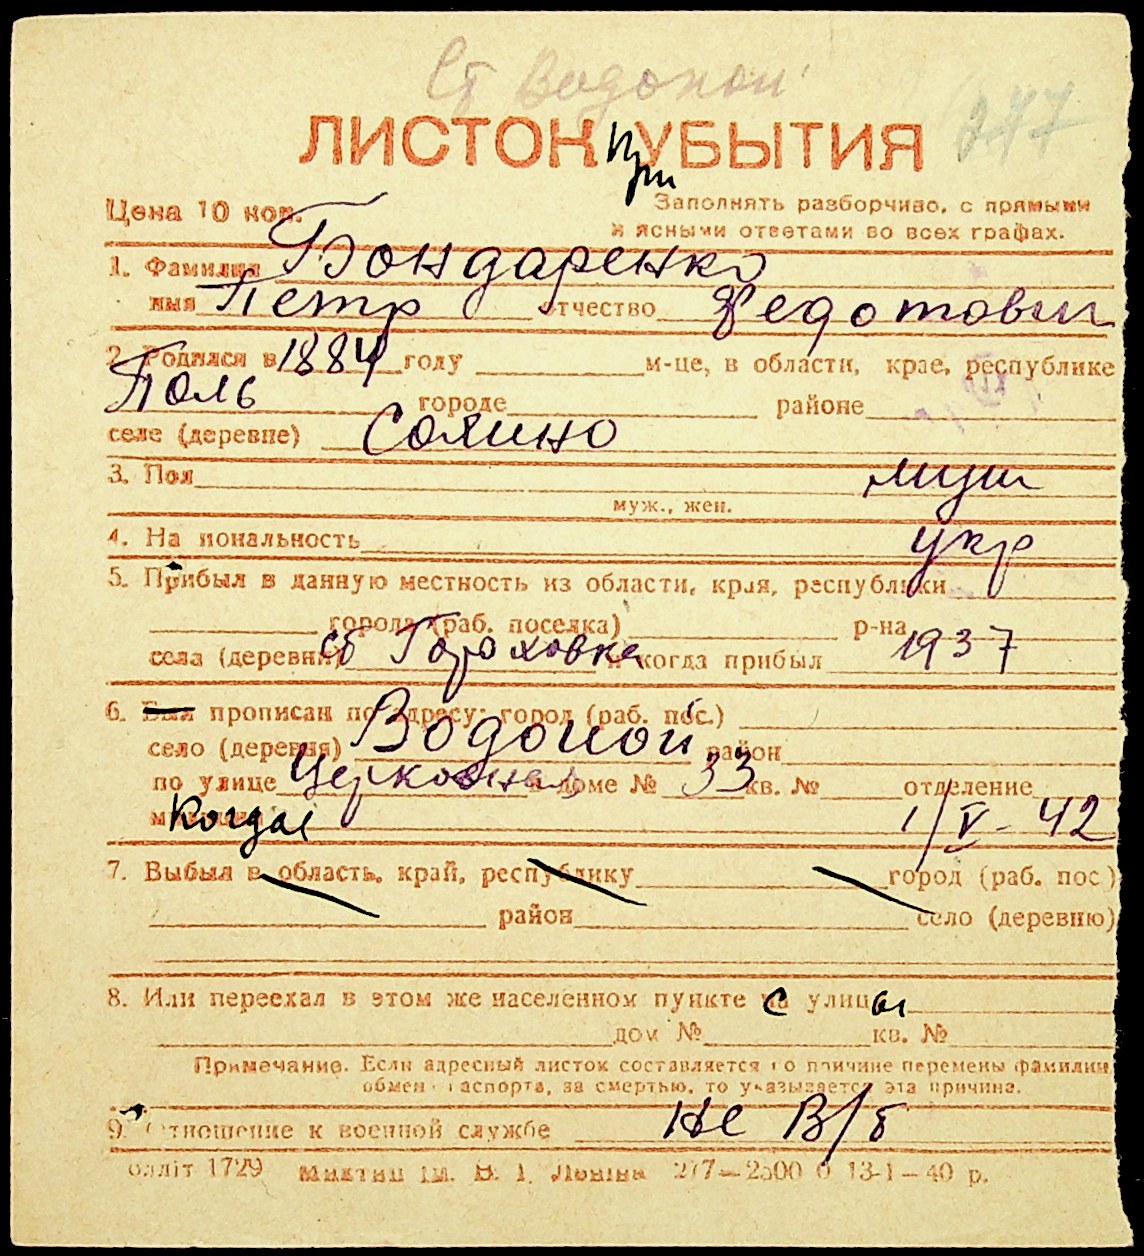 Ст Водопой
277
ЛИСТОК При УБЫТИЯ
Цена 10 коп.
Заполнять разборчиво, с прямыми
и ясными ответами во всех графах.
1. Фамилия Бондаренко
имя Петр отчество Федотович
2. Родился в 1884 году м-це, в области, крае, республике
Поль городе районе
селе (деревне)
3. Пол муж
муж., жен.
4. На иональность укр
5. Прибыл в данную местность из области, края, республики
города (раб. поселка) р-на
села (деревни) ст Гороховка и когда прибыл 1937
6. Был прописан по адресу: город (раб. пос.)
село (деревня) Водопой район
по улице Церковная в доме № 33 кв. № отделение
милиции Когда 1/V - 42
7. Выбыл в область, край, республику город (раб. пос.)
район село (деревню)
8. Или переехал в этом же населенном пункте с улицы
дом № кв. №
Примечание. Если адресный листок составляется по причине перемены фамилии
обмен паспорта, за смертью, то указывается эта причина.
9. Отношение к военной службе Не В/б
блліт 1729 277—2500 0 13-1—40 р.